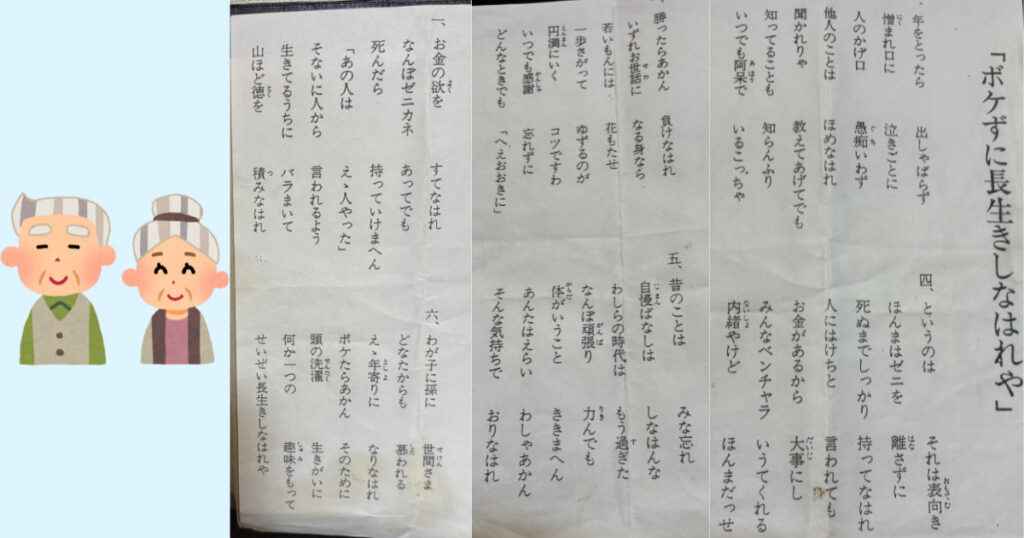 「ボケずに長生きしなはれや」
、年をとったら　出しゃばらず
憎まれ口に　泣きごとに
人のかげ口　愚痴いわず
他人のことは　ほめなはれ
聞かれりゃ　教えてあげてでも
知ってることも　知らんふり
いつでも阿呆で　いるこっちゃ
、勝ったらあかん　負けなはれ
いずれお世話に　なる身なら
若いもんには　花もたせ
一歩さがって　ゆずるのが
円満にいく　コツですわ
いつでも感謝　忘れずに
どんなときでも　「へえおおきに」
一、お金の欲を　すてなはれ
なんぼゼニカネ　あってでも
死んだら　持っていけまへん
「あの人は　えゝ人やった」
そないに人から　言われるよう
生きてるうちに　バラまいて
山ほど徳を　積みなはれ
四、というのは　それは表向き
ほんまはゼニを　離さずに
死ぬまでしっかり　持ってなはれ
人にはけちと　言われても
お金があるから　大事にし
みんなベンチャラ　いうてくれる
内緒やけど　ほんまだっせ
五、昔のことは　みな忘れ
自慢ばなしは　しなはんな
わしらの時代は　もう過ぎた
なんぼ頑張り　力んでも
体がいうこと　ききまへん
あんたはえらい　わしゃあかん
そんな気持ちで　おりなはれ
六、わが子に孫に　世間さま
どなたからも　慕われる
えゝ年寄りに　なりなはれ
ボケたらあかん　そのために
頭の洗濯　生きがいに
何か一つの　趣味をもって
せいぜい長生きしなはれや